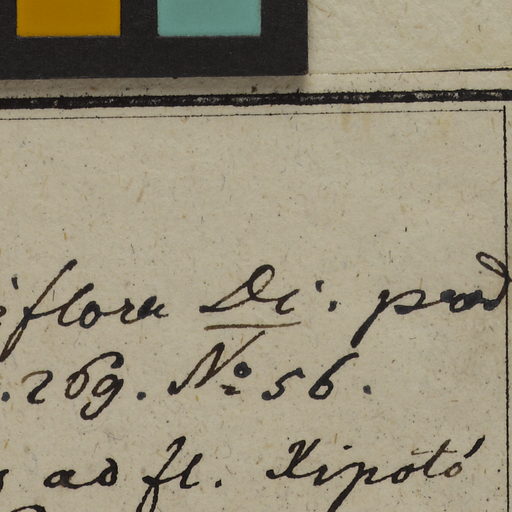 iflora Di. prod
. 269. No 56.
s ad fl. Xipotó